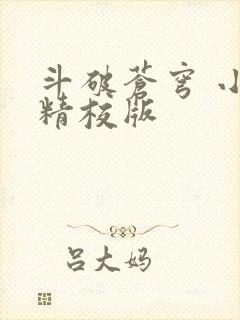 斗破苍穹 小
精校版
吕大妈